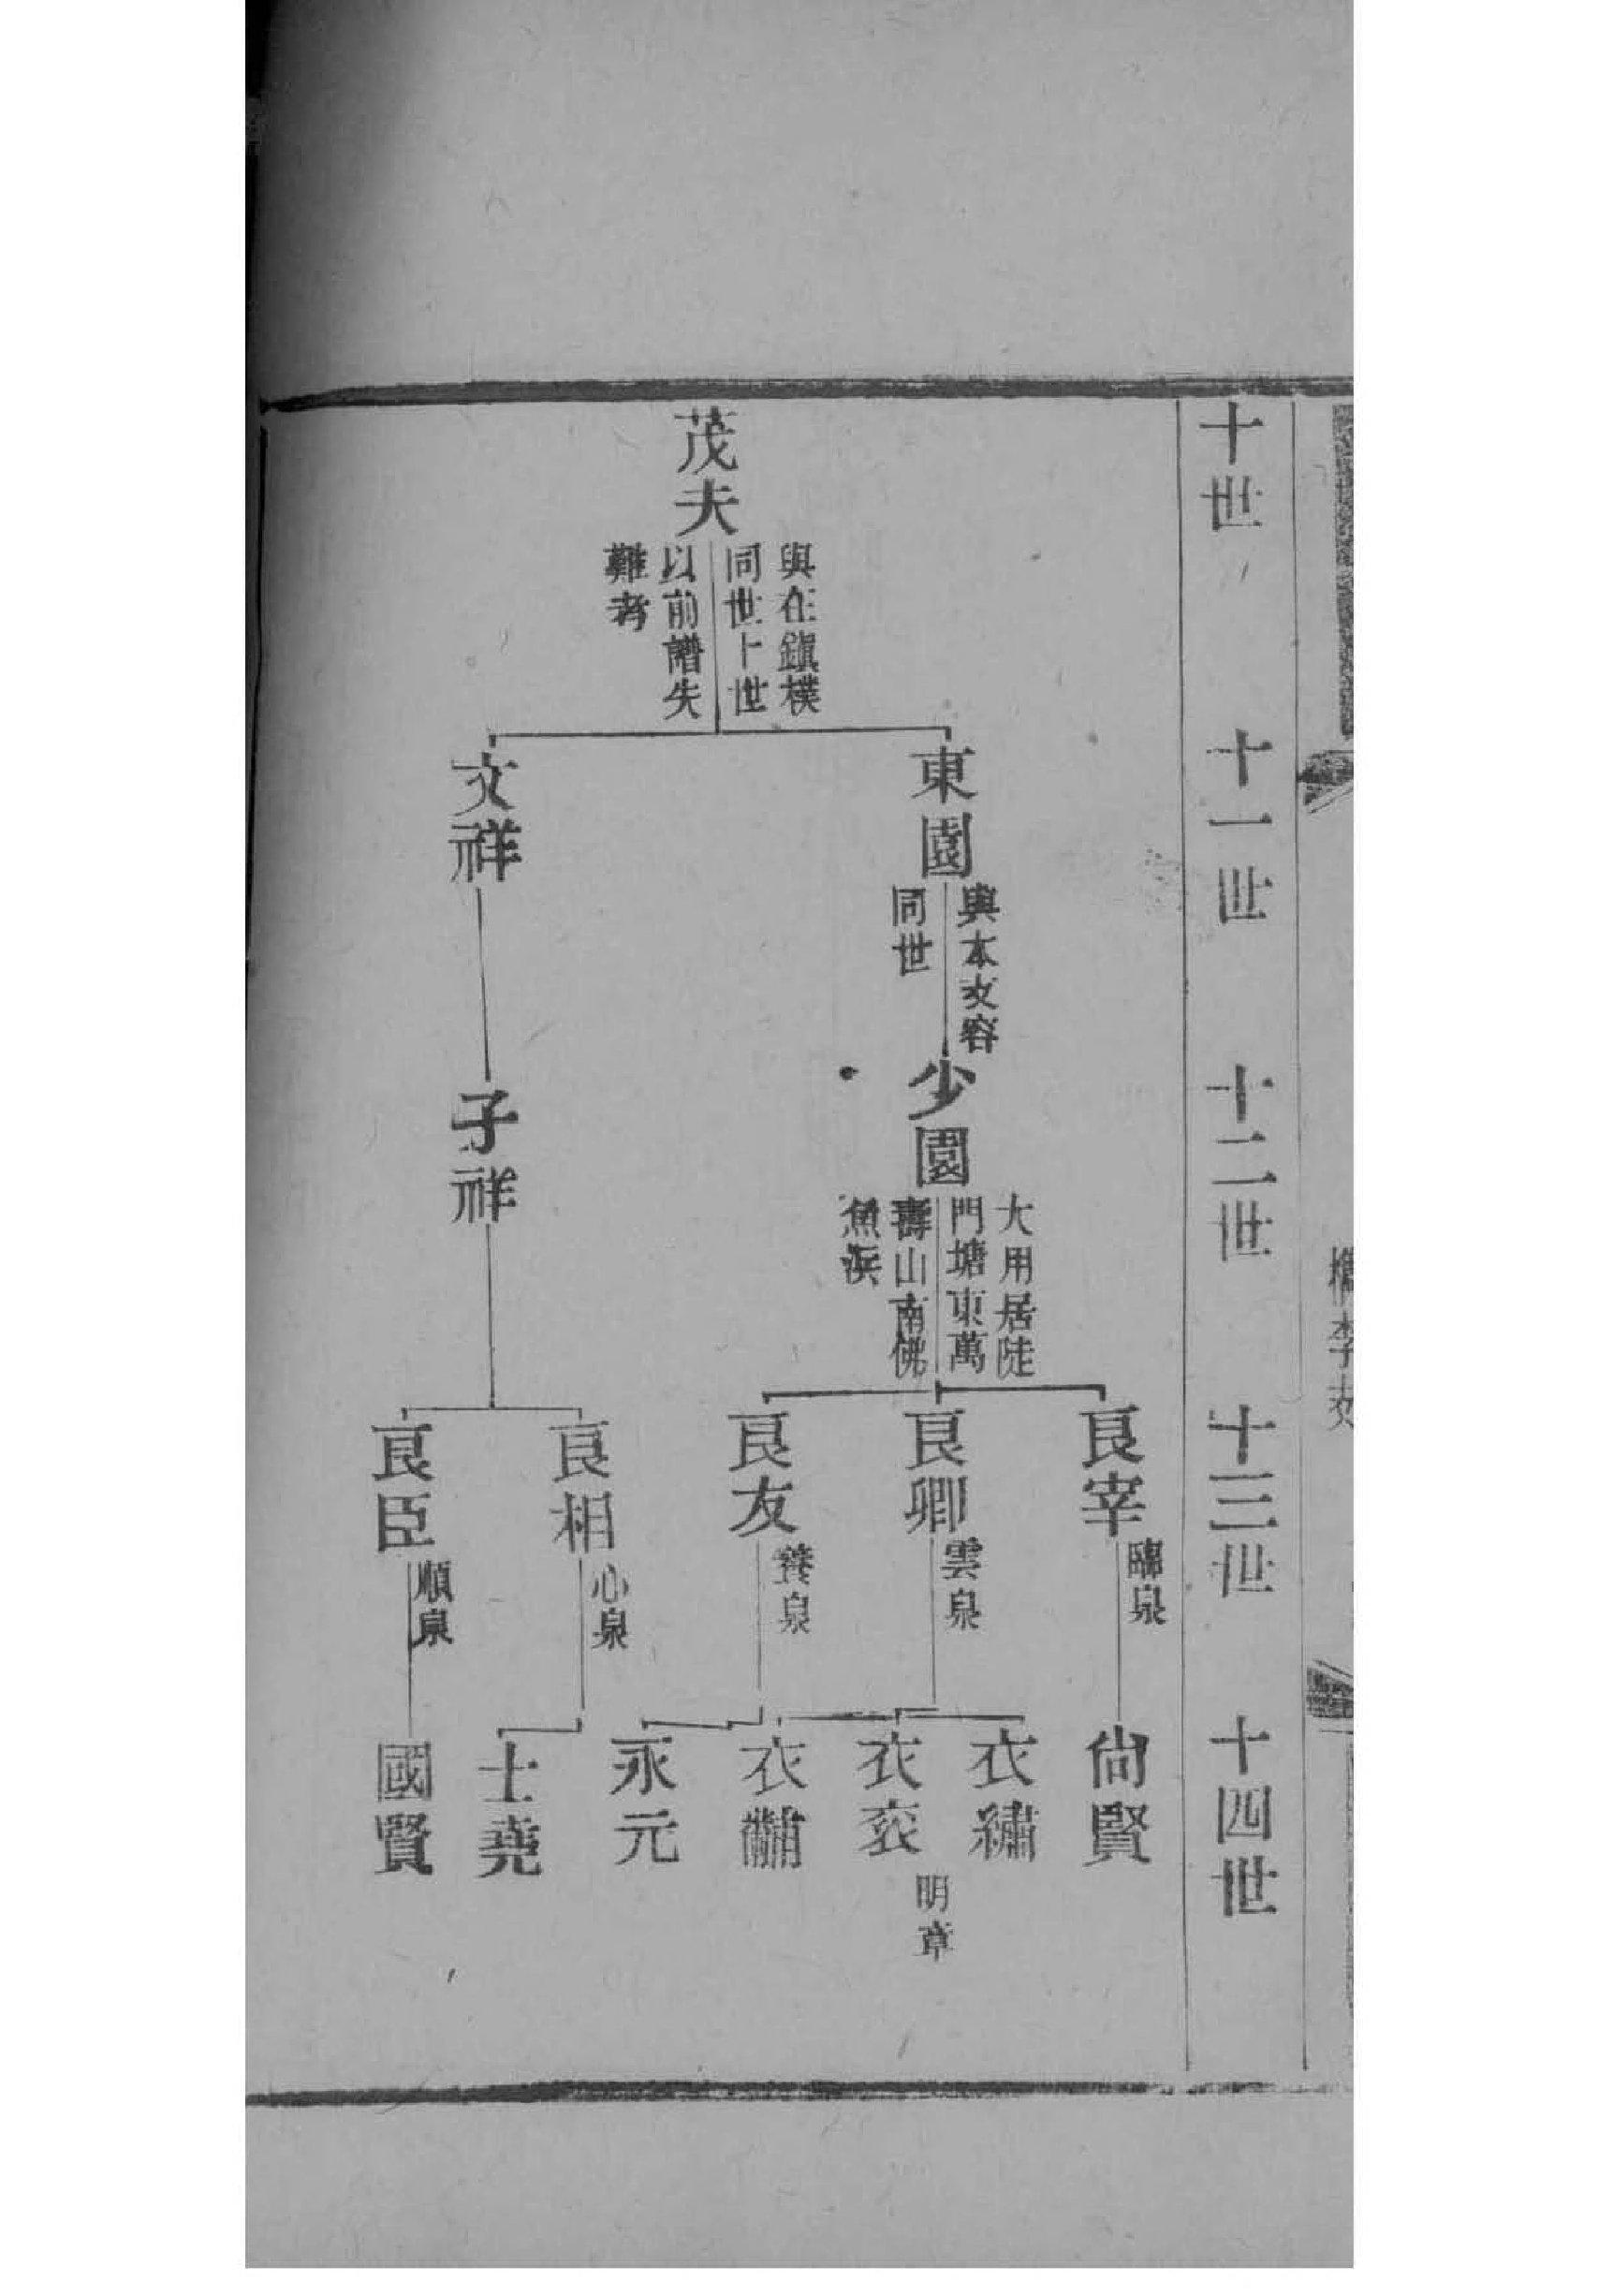 十世
十一世
十二世
十三世
十四世
茂夫
與在鎮樸
同世上世
以前譜失
難考
東園
與本支容
同世
文祥
少園
大用居陡
門塘東萬
壽山南佛
魚浜
子祥
良宰
臨泉
良卿
雲泉
良友
養泉
良相
心泉
良臣
順泉
尙賢
衣繡
衣袞
明章
衣黼
永元
士堯
國賢
檇李